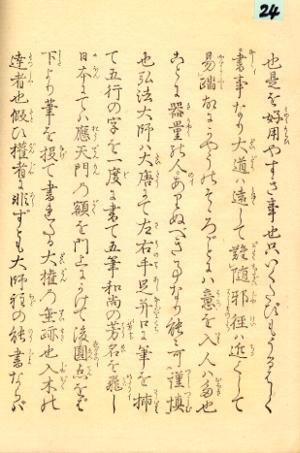 24
也是を好用やすき事也只いくたびもうるはしく
書事なり大道ハ遠して難随邪径ハ近くして
易踏故にかやうのそゞろごとにハ意を入人ハ多也
まことに器量の人あらぬべき事なり能々可謹慎
也弘法大師ハ大唐にて左右手足并口に筆を挿
て五行の字を一度に書て五筆和尚の芳名を飛し
日本にてハ應天門の額を門上にかけて後圓点をば
下より筆を投て書きたる大権の垂跡也入木の
達者也假ひ權者に非ずとも大師程の能書ならバ